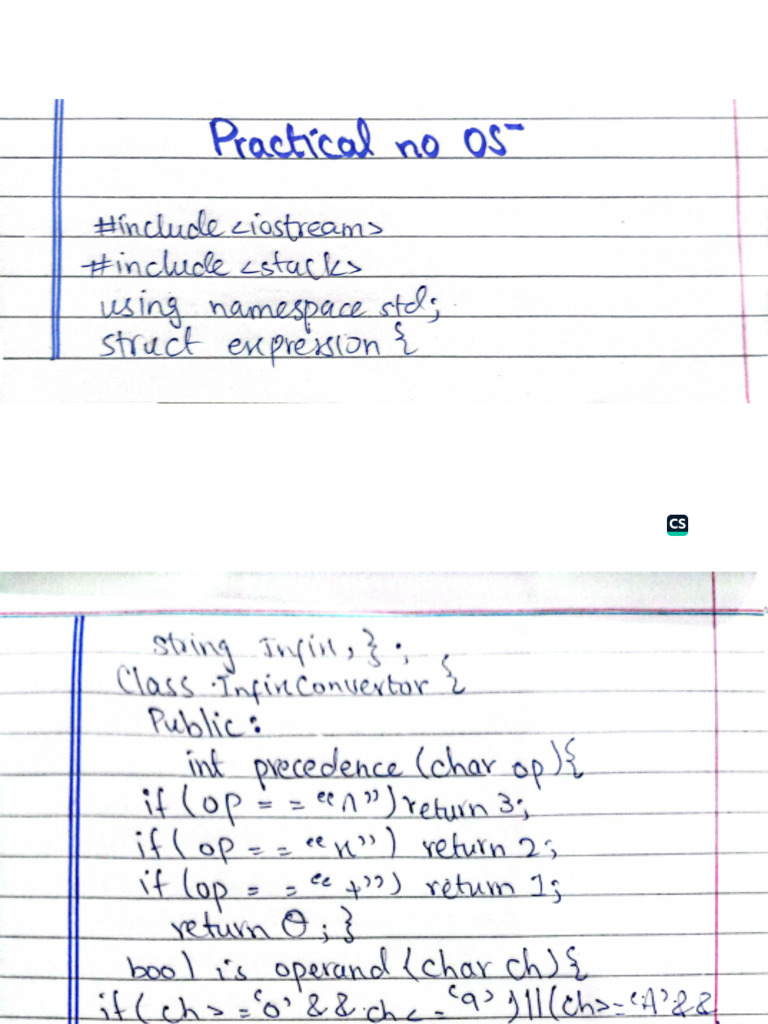 Practical no 05-
#include <iostream>
#include <stack>
using namespace std;
struct expression {
CS
string Infix, } ;
Class InfixConvertor {
Public:
int precedence (char op) {
if (op = = "^") return 3;
if ( op = = "x") return 2;
if (op = = "+") return 1;
return 0 ; }
bool is operand (char ch) {
if ( ch > = '0' && ch < = '9' ) || (ch > = 'A' &&